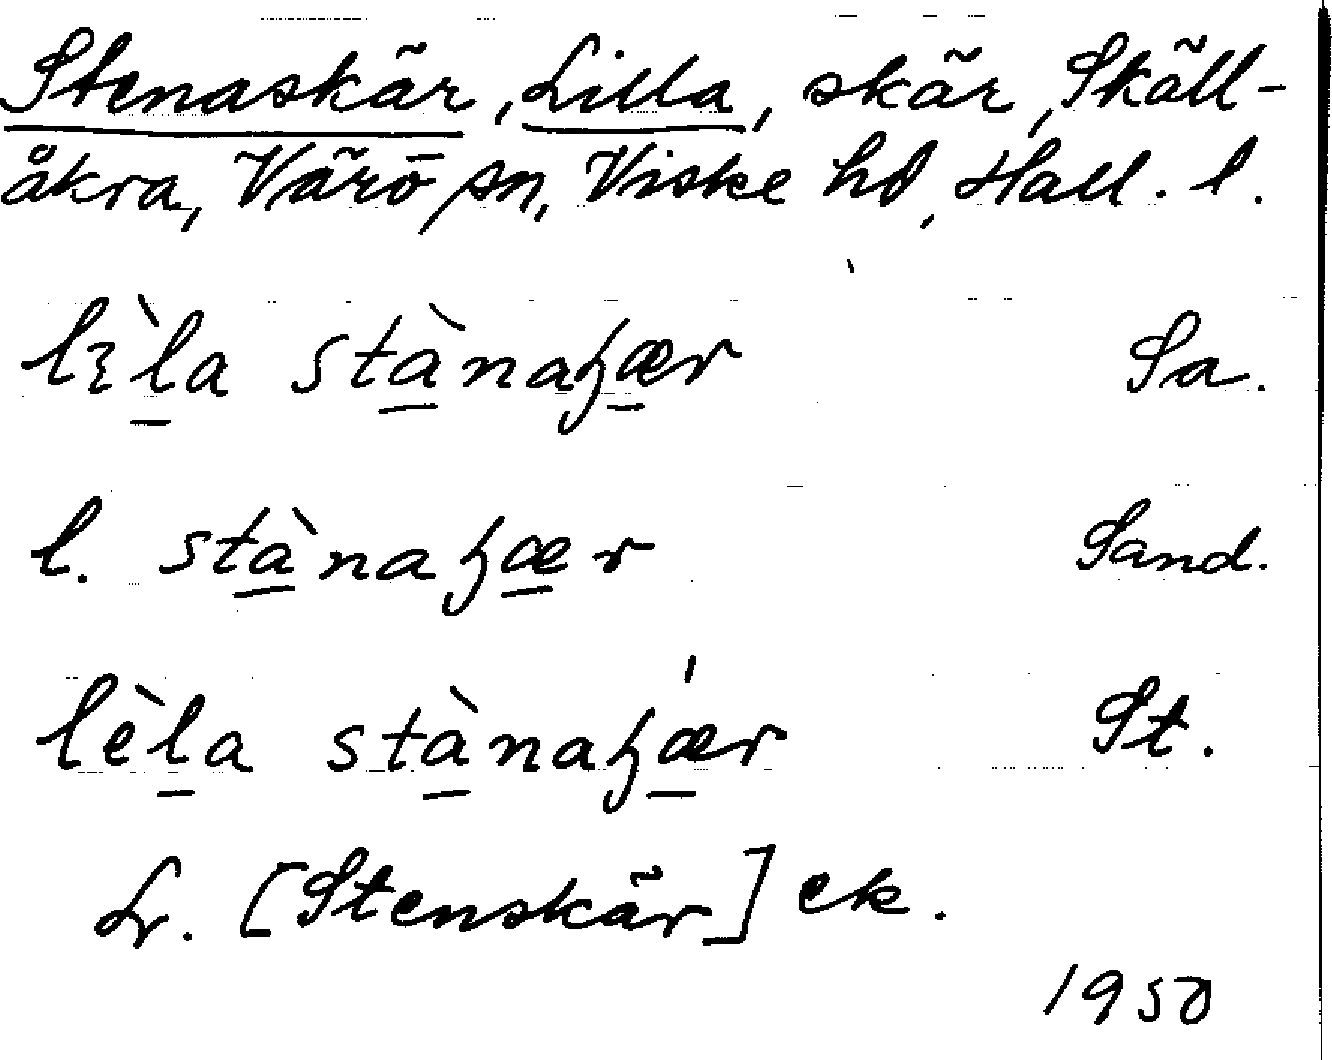 Stenaskär, Lilla, skär, Skäll-
åkra, Värö sn, Viske hd, Hall. l.
lɩ̀la stànaɧær Sa.
l. stànaɧær Sand.
lèla stànaɧǽr St.
L. [Stenskär] ek.
1950